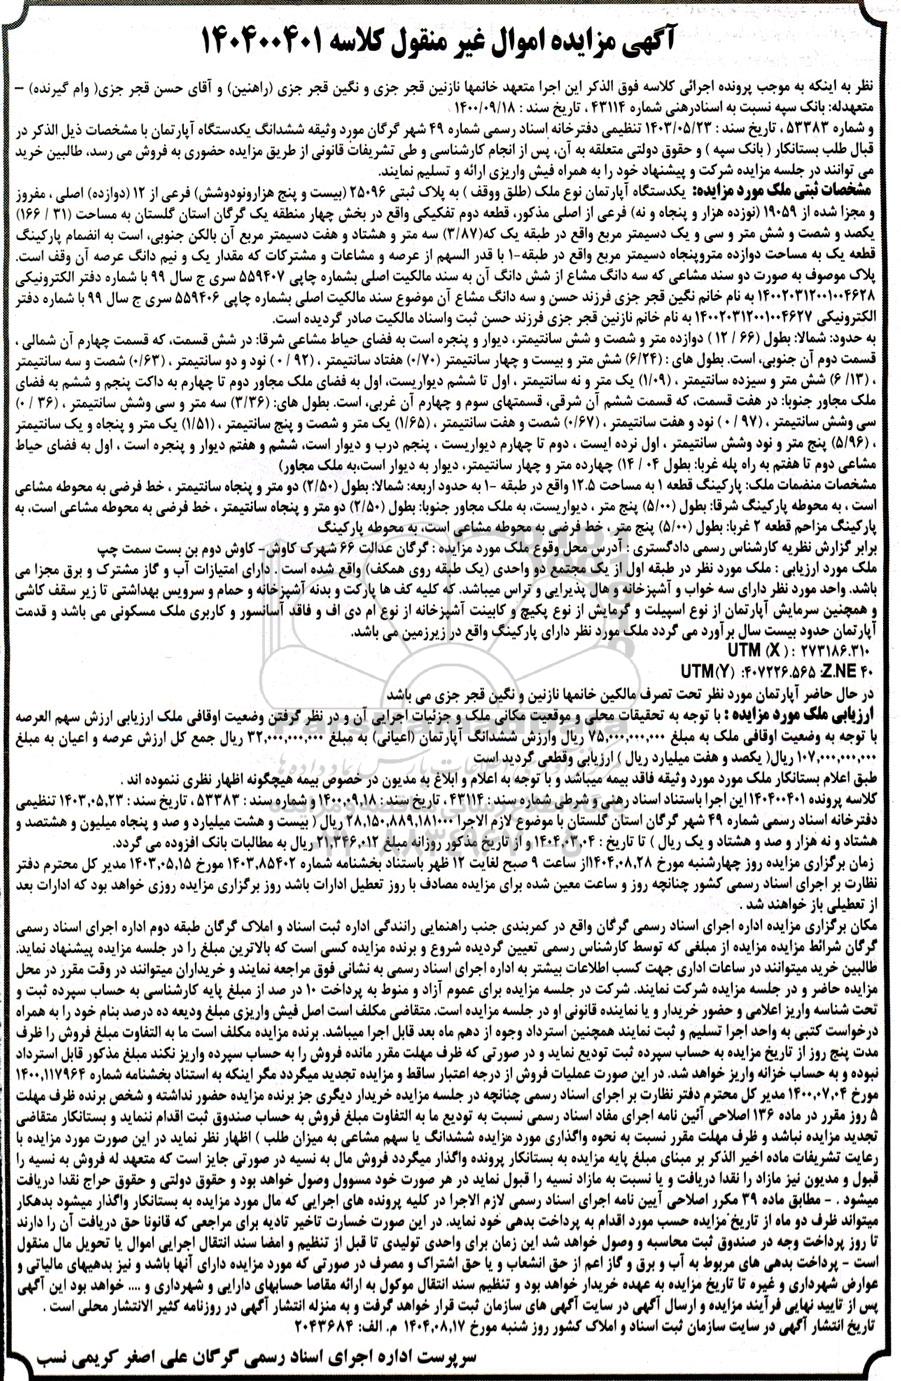 آگهی مزایده اموال غیر منقول کلاسه ۱۴۰۴۰۰۴۰۱
نظر به اینکه به موجب پرونده اجرائی کلاسه فوق الذکر این اجرا متعهد خانمها نازنین قجر جزی و نگین قجر جزی (راهنین) و آقای حسن قجر جزی( وام گیرنده) –
متعهدله: بانک سپه نسبت به اسنادرهنی شماره ۴۳۱۱۴ ، تاریخ سند : ۱۴۰۰/۰۹/۱۸
و شماره ۵۳۳۸۳ ، تاریخ سند : ۱۴۰۳/۰۵/۲۳ تنظیمی دفترخانه اسناد رسمی شماره ۴۹ شهر گرگان مورد وثیقه ششدانگ یکدستگاه آپارتمان با مشخصات ذیل الذکر در
قبال طلب بستانکار ( بانک سپه ) و حقوق دولتی متعلقه به آن، پس از انجام کارشناسی و طی تشریفات قانونی از طریق مزایده حضوری به فروش می رسد، طالبین خرید
می توانند در جلسه مزایده شرکت و پیشنهاد خود را به همراه فیش واریزی ارائه و تسلیم نمایند.
مشخصات ثبتی ملک مورد مزایده: یکدستگاه آپارتمان نوع ملک (طلق ووقف ) به پلاک ثبتی ۲۵۰۹۶ (بیست و پنج هزارونودوشش) فرعی از ۱۲ (دوازده) اصلی ، مفروز
و مجزا شده از ۱۹۰۵۹ (نوزده هزار و پنجاه و نه) فرعی از اصلی مذکور، قطعه دوم تفکیکی واقع در بخش چهار منطقه یک گرگان استان گلستان به مساحت (۳۱ / ۱۶۶)
یکصد و شصت و شش متر و سی و یک دسیمتر مربع واقع در طبقه یک که(۳/۸۷) سه متر و هشتاد و هفت دسیمتر مربع آن بالکن جنوبی، است به انضمام پارکینگ
قطعه یک به مساحت دوازده متروپنجاه دسیمتر مربع واقع در طبقه-۱ با قدر السهم از عرصه و مشاعات و مشترکات که مقدار یک و نیم دانگ عرصه آن وقف است.
پلاک موصوف به صورت دو سند مشاعی که سه دانگ مشاع از شش دانگ آن به سند مالکیت اصلی بشماره چاپی ۵۵۹۴۰۷ سری ج سال ۹۹ با شماره دفتر الکترونیکی
۱۴۰۰۲۰۳۱۲۰۰۱۰۰۴۶۲۸ به نام خانم نگین قجر جزی فرزند حسن و سه دانگ مشاع آن موضوع سند مالکیت اصلی بشماره چاپی ۵۵۹۴۰۶ سری ج سال ۹۹ با شماره دفتر
الکترونیکی ۱۴۰۰۲۰۳۱۲۰۰۱۰۰۴۶۲۷ به نام خانم نازنین قجر جزی فرزند حسن ثبت واسناد مالکیت صادر گردیده است.
به حدود: شمالا: بطول (۶۶ / ۱۲ ) دوازده متر و شصت و شش سانتیمتر، دیوار و پنجره است به فضای حیاط مشاعی شرقا: در شش قسمت، که قسمت چهارم آن شمالی ،
قسمت دوم آن جنوبی، است. بطول های : (۶/۲۴) شش متر و بیست و چهار سانتیمتر (۰/۷۰) هفتاد سانتیمتر ، (۹۲ / ۰) نود و دو سانتیمتر ، (۰/۶۳) شصت و سه سانتیمتر
، (۱۳/ ۶) شش متر و سیزده سانتیمتر ، (۱/۰۹) یک متر و نه سانتیمتر ، اول تا ششم دیواریست، اول به فضای ملک مجاور دوم تا چهارم به داکت پنجم و ششم به فضای
ملک مجاور جنوبا: در هفت قسمت، که قسمت ششم آن شرقی، قسمتهای سوم و چهارم آن غربی، است. بطول های: (۳/۳۶) سه متر و سی وشش سانتیمتر ، (۳۶ / ۰)
سی وشش سانتیمتر ، (۹۷ / ۰) نود و هفت سانتیمتر ، (۰/۶۷) شصت و هفت سانتیمتر ، (۱/۶۵) یک متر و شصت و پنج سانتیمتر ، (۱/۵۱) یک متر و پنجاه و یک سانتیمتر
، (۵/۹۶) پنج متر و نود وشش سانتیمتر ، اول نرده ایست ، دوم تا چهارم دیواریست ، پنجم درب و دیوار است، ششم و هفتم دیوار و پنجره است ، اول به فضای حیاط
مشاعی دوم تا هفتم به راه پله غربا: بطول (۰۴ / ۱۴) چهارده متر و چهار سانتیمتر، دیوار به دیوار است،به ملک مجاور)
مشخصات منضمات ملک: پارکینگ قطعه ۱ به مساحت ۱۲.۵ واقع در طبقه -۱ به حدود اربعه: شمالا: بطول (۲/۵۰) دو متر و پنجاه سانتیمتر ، خط فرضی به محوطه مشاعی
است ، به محوطه پارکینگ شرقا: بطول (۵/۰۰) پنج متر ، دیواریست، به ملک مجاور جنوبا: بطول (۲/۵۰) دو متر و پنجاه سانتیمتر ، خط فرضی به محوطه مشاعی است، به
پارکینگ مزاحم قطعه ۲ غربا: بطول (۵/۰۰) پنج متر ، خط فرضی به محوطه مشاعی است، به محوطه پارکینگ
برابر گزارش نظریه کارشناس رسمی دادگستری : آدرس محل وقوع ملک مورد مزایده : گرگان عدالت ۶۶ شهرک کاوش- کاوش دوم بن بست سمت چپ
ملک مورد ارزیابی : ملک مورد نظر در طبقه اول از یک مجتمع دو واحدی (یک طبقه روی همکف) واقع شده است . دارای امتیازات آب و گاز مشترک و برق مجزا می
باشد. واحد مورد نظر دارای سه خواب و آشپزخانه و هال پذیرایی و تراس میباشد. که کلیه کف ها پارکت و بدنه آشپزخانه و حمام و سرویس بهداشتی تا زیر سقف کاشی
و همچنین سرمایش آپارتمان از نوع اسپیلت و گرمایش از نوع پکیج و کابینت آشپزخانه از نوع ام دی اف و فاقد آسانسور و کاربری ملک مسکونی می باشد و قدمت
آپارتمان حدود بیست سال برآورد می گردد ملک مورد نظر دارای پارکینگ واقع در زیرزمین می باشد.
UTM (X ) : ۲۷۳۱۸۶.۳۱۰
UTM(Y) :۴۰۷۲۲۶.۵۶۵ :Z.NE ۴۰
در حال حاضر آپارتمان مورد نظر تحت تصرف مالکین خانمها نازنین و نگین قجر جزی می باشد
ارزیابی ملک مورد مزایده : با توجه به تحقیقات محلی و موقعیت مکانی ملک و جزئیات اجرایی آن و در نظر گرفتن وضعیت اوقافی ملک ارزیابی ارزش سهم العرصه
با توجه به وضعیت اوقافی ملک به مبلغ ۷۵,۰۰۰,۰۰۰,۰۰۰ ریال وارزش ششدانگ آپارتمان (اعیانی) به مبلغ ۳۲,۰۰۰,۰۰۰,۰۰۰ ریال جمع کل ارزش عرصه و اعیان به مبلغ
۱۰۷,۰۰۰,۰۰۰,۰۰۰ ریال( یکصد و هفت میلیارد ریال ) ارزیابی وقطعی گردید است
طبق اعلام بستانکار ملک مورد مورد وثیقه فاقد بیمه میباشد و با توجه به اعلام و ابلاغ به مدیون در خصوص بیمه هیچگونه اظهار نظری ننموده اند .
کلاسه پرونده ۱۴۰۴۰۰۴۰۱ این اجرا باستناد اسناد رهنی و شرطی شماره سند : ۴۳۱۱۴ ، تاریخ سند : ۱۴۰۰,۰۹,۱۸ و شماره سند : ۵۳۳۸۳ ، تاریخ سند : ۱۴۰۳,۰۵,۲۳ تنظیمی
دفترخانه اسناد رسمی شماره ۴۹ شهر گرگان استان گلستان با موضوع لازم الاجرا ۲۸,۱۵۰,۸۸۹,۱۸۱۰۰۰ ریال ( بیست و هشت میلیارد و صد و پنجاه میلیون و هشتصد و
هشتاد و نه هزار و صد و هشتاد و یک ریال ) تا تاریخ : ۱۴۰۴,۰۳,۰۴ و از تاریخ مذکور روزانه مبلغ ۲۱,۳۴۶,۰۱۲ ریال به مطالبات بانک افزوده می گردد.
زمان برگزاری مزایده روز چهارشنبه مورخ ۱۴۰۴,۰۸,۲۸از ساعت ۹ صبح لغایت ۱۲ ظهر باستناد بخشنامه شماره ۱۴۰۳,۸۵۴۰۲ مورخ ۱۴۰۳,۰۵,۱۵ مدیر کل محترم دفتر
نظارت بر اجرای اسناد رسمی کشور چنانچه روز و ساعت معین شده برای مزایده مصادف با روز تعطیل ادارات باشد روز برگزاری مزایده روزی خواهد بود که ادارات بعد
از تعطیلی باز خواهند شد .
مکان برگزاری مزایده اداره اجرای اسناد رسمی گرگان واقع در کمربندی جنب راهنمایی رانندگی اداره ثبت اسناد و املاک گرگان طبقه دوم اداره اجرای اسناد رسمی
گرگان شرائط مزایده مزایده از مبلغی که توسط کارشناس رسمی تعیین گردیده شروع و برنده مزایده کسی است که بالاترین مبلغ را در جلسه مزایده پیشنهاد نماید.
طالبین خرید میتوانند در ساعات اداری جهت کسب اطلاعات بیشتر به اداره اجرای اسناد رسمی به نشانی فوق مراجعه نمایند و خریداران میتوانند در وقت مقرر در محل
مزایده حاضر و در جلسه مزایده شرکت نمایند. شرکت در جلسه مزایده برای عموم آزاد و منوط به پرداخت ۱۰ در صد از مبلغ پایه کارشناسی به حساب سپرده ثبت و
تحت شناسه واریز اعلامی و حضور خریدار و یا نماینده قانونی او در جلسه مزایده است. متقاضی مکلف است اصل فیش واریزی مبلغ ودیعه ده درصد بنام خود را به همراه
درخواست کتبی به واحد اجرا تسلیم و ثبت نمایند همچنین استرداد وجوه از دهم ماه بعد قابل اجرا میباشد. برنده مزایده مکلف است ما به التفاوت مبلغ فروش را ظرف
مدت پنج روز از تاریخ مزایده به حساب سپرده ثبت تودیع نماید و در صورتی که ظرف مهلت مقرر مانده فروش را به حساب سپرده واریز نکند مبلغ مذکور قابل استرداد
نبوده و به حساب خزانه واریز خواهد شد. در این صورت عملیات فروش از درجه اعتبار ساقط و مزایده تجدید میگردد مگر اینکه به استناد بخشنامه شماره ۱۴۰۰,۱۱۷۹۶۴
مورخ ۱۴۰۰,۰۷,۰۴ مدیر کل محترم دفتر نظارت بر اجرای اسناد رسمی چنانچه در جلسه مزایده خریدار دیگری جز برنده مزایده حضور نداشته و شخص برنده ظرف مهلت
۵ روز مقرر در ماده ۱۳۶ اصلاحی آئین نامه اجرای مفاد اسناد رسمی نسبت به تودیع ما به التفاوت مبلغ فروش به حساب صندوق ثبت اقدام ننماید و بستانکار متقاضی
تجدید مزایده نباشد و ظرف مهلت مقرر نسبت به نحوه واگذاری مورد مزایده ششدانگ یا سهم مشاعی به میزان طلب ) اظهار نظر نماید در این صورت مورد مزایده با
رعایت تشریفات ماده اخیر الذکر بر مبنای مبلغ پایه مزایده به بستانکار پرونده واگذار میگردد فروش مال به نسیه در صورتی جایز است که متعهد له فروش به نسیه را
قبول و مدیون نیز مازاد را نقدا دریافت و یا نسبت به مازاد نسیه را قبول نماید در هر صورت خود مسوول وصول خواهد بود و حقوق دولتی و حقوق حراج نقدا دریافت
میشود . - مطابق ماده ۳۹ مکرر اصلاحی آیین نامه اجرای اسناد رسمی لازم الاجرا در کلیه پرونده های اجرایی که مال مورد مزایده به بستانکار واگذار میشود بدهکار
میتواند ظرف دو ماه از تاریخ مزایده حسب مورد اقدام به پرداخت بدهی خود نماید. در این صورت خسارت تاخیر تادیه برای مراجعی که قانونا حق دریافت آن را دارند
تا روز پرداخت وجه در صندوق ثبت محاسبه و وصول خواهد شد این زمان برای واحدی تولیدی تا قبل از تنظیم و امضا سند انتقال اجرایی اموال یا تحویل مال منقول
است - پرداخت بدهی های مربوط به آب و برق و گاز اعم از حق انشعاب و یا حق اشتراک و مصرف در صورتی که مورد مزایده دارای آنها باشد و نیز بدهیهای مالیاتی و
عوارض شهرداری و غیره تا تاریخ مزایده به عهده خریدار خواهد بود و تنظیم سند انتقال موکول به ارائه مفاصا حسابهای دارایی و شهرداری و .... خواهد بود این آگهی
پس از تایید نهایی فرآیند مزایده و ارسال آگهی در سایت آگهی های سازمان ثبت قرار خواهد گرفت و به منزله انتشار آگهی در روزنامه کثیر الانتشار محلی است .
تاریخ انتشار آگهی در سایت سازمان ثبت اسناد و املاک کشور روز شنبه مورخ ۱۴۰۴,۰۸,۱۷ م. الف: ۲۰۴۳۶۸۴
سرپرست اداره اجرای اسناد رسمی گرگان علی اصغر کریمی نسب